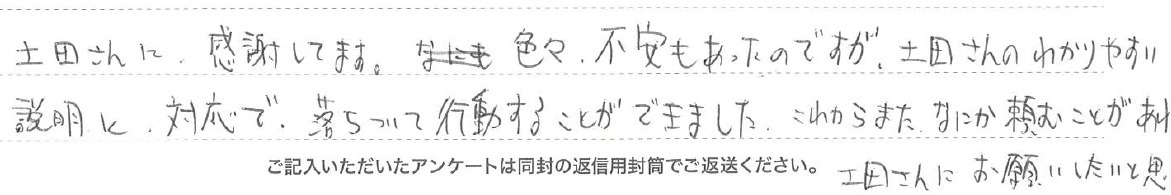 土田さんに、感謝してます。色々、不安もあったのですが、土田さんのわかりやすい
説明と、対応で、落ちついて行動することができました。これからまたなにか頼むことがあれ
ご記入いただいたアンケートは同封の返信用封筒でご返送ください。
土田さんにお願いしたいと思